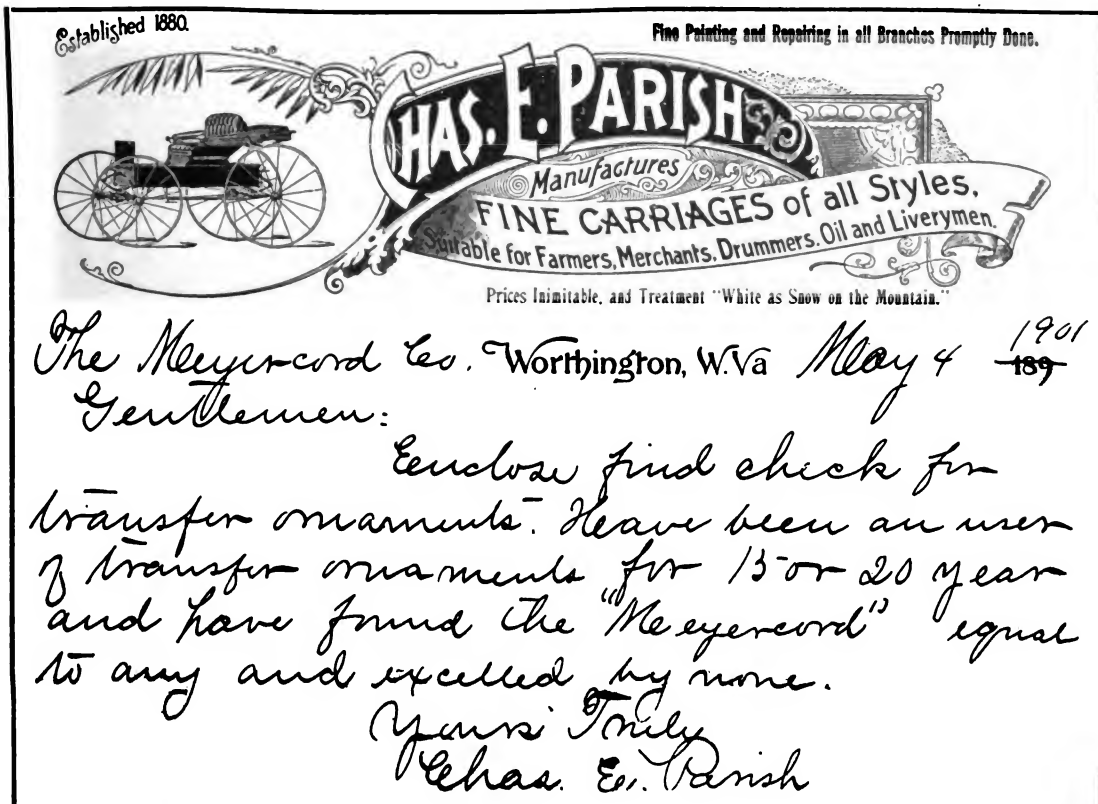 Established 1880.
Fine Painting and Repairing in all Branches Promptly Done.
CHAS. E. PARISH
Manufactures
FINE CARRIAGES of all Styles,
Suitable for Farmers, Merchants, Drummers, Oil and Liverymen.
Prices Inimitable, and Treatment "White as Snow on the Mountain."
The Meyercord Co. Worthington, W.Va May 4 189 1901
Gentlemen:
Enclose find check for
transfer ornaments. Heave been an user
of transfer ornaments for 15 or 20 year
and have found the "Meeyercord" equal
to any and excelled by none.
Yours Truly
Chas. E. Parish